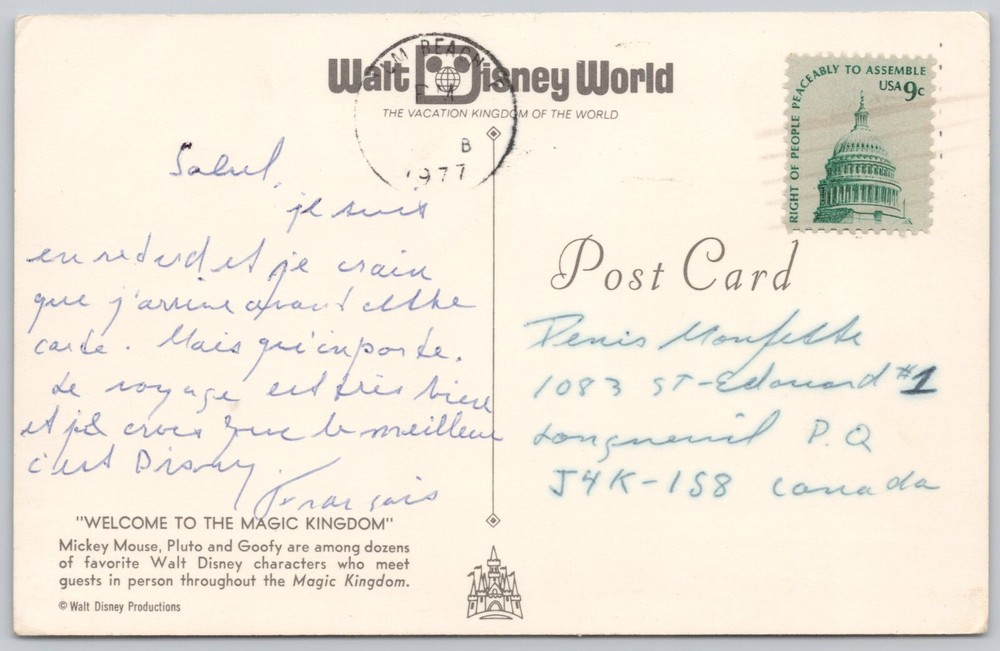 Walt Disney World
THE VACATION KINGDOM OF THE WORLD
LM BEACH
B
1977
RIGHT OF PEOPLE PEACEABLY TO ASSEMBLE
USA 9c
Salut,
je suis
en retard et je crain
que j'arrive avant cette
carte. Mais qu'importe.
Le voyage est très bien
et je crois que le meilleur
c'est Disney.
François
Post Card
Denis Monfette
1083 ST-Edouard #1
Longueuil P.Q
J4K-1S8 Canada
"WELCOME TO THE MAGIC KINGDOM"
Mickey Mouse, Pluto and Goofy are among dozens
of favorite Walt Disney characters who meet
guests in person throughout the Magic Kingdom.
© Walt Disney Productions